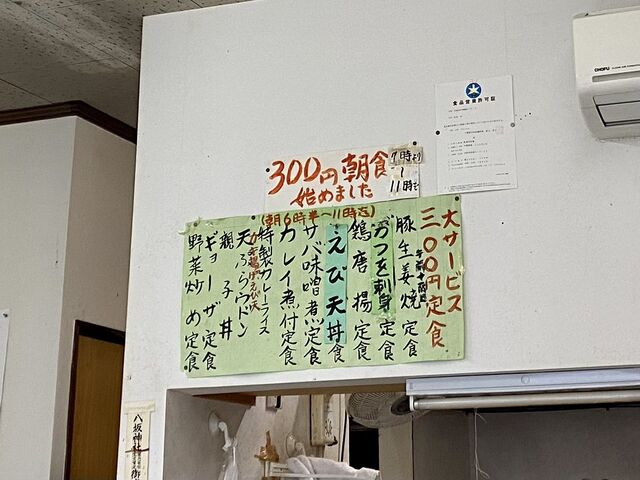 食品営業許可証
CHOFU
300円朝食
始めました
7時より
11時まで
(朝6時半〜11時迄)
大サービス
三〇〇円定食
豚生姜焼定食
かつを刺身定食
鶏唐揚定食
えび天丼
サバ味噌煮定食
カレイ煮付定食
特製カレーライス
天ぷらウドン
親子丼
ギョーザ定食
野菜炒め定食
八坂神社